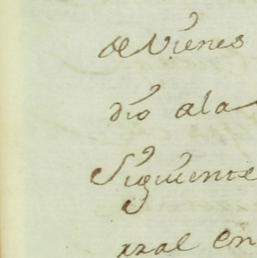 de Vienes
dio ala
Siguiente
rral en